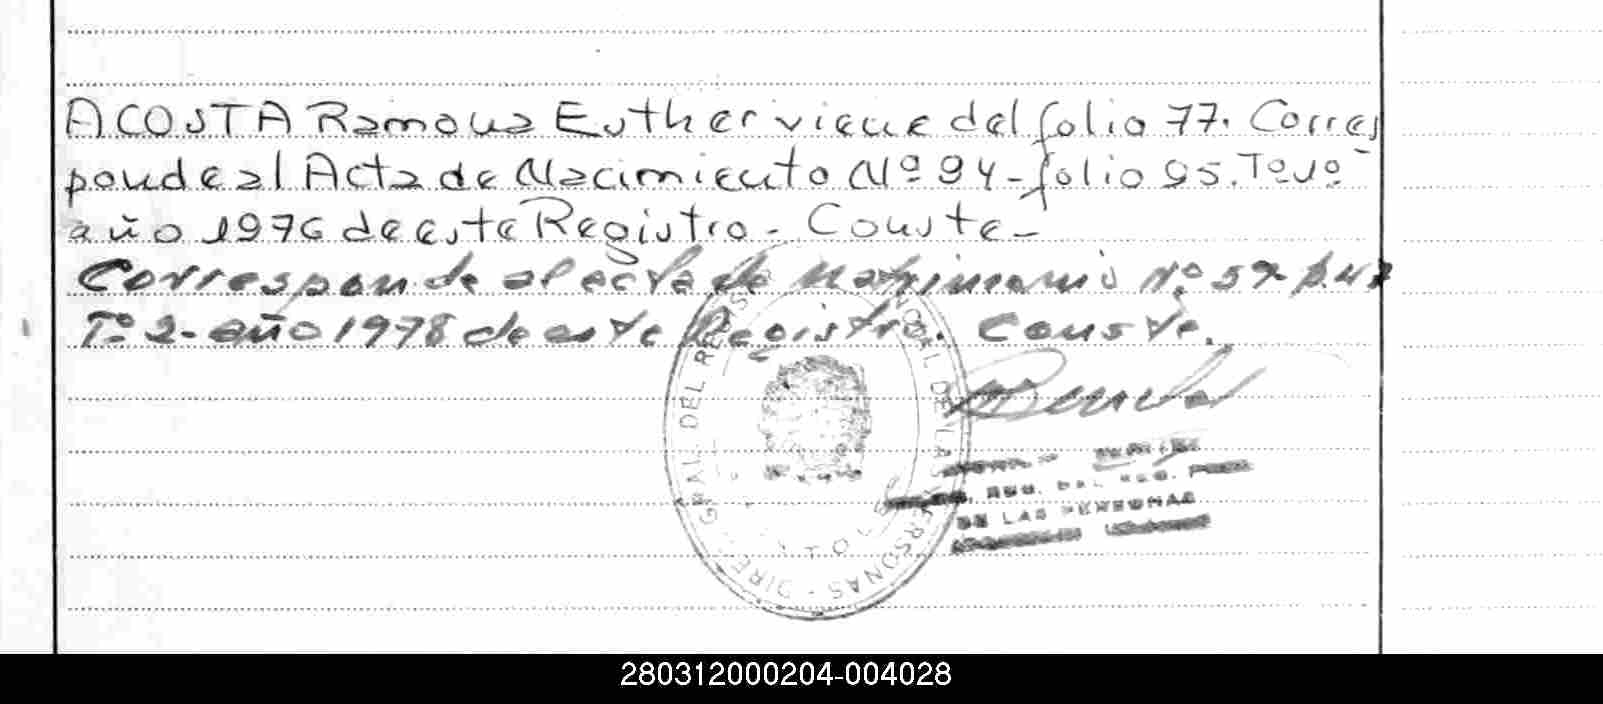 ACOSTA Ramona Esther viene del folio 77. Corres
ponde al Acta de Nacimiento Nº 94-folio 95. Tº 1º
año 1976 de este Registro. Conste-
Corresponde al acta de Matrimonio Nº 59- f. 42
Tº 2- año 1978 de este Registro. Conste.
DIREC GRAL DEL REGIST PROVINCIAL DE LAS PERSONAS
REG. DEL REG. PROV.
DE LAS PERSONAS
280312000204-004028